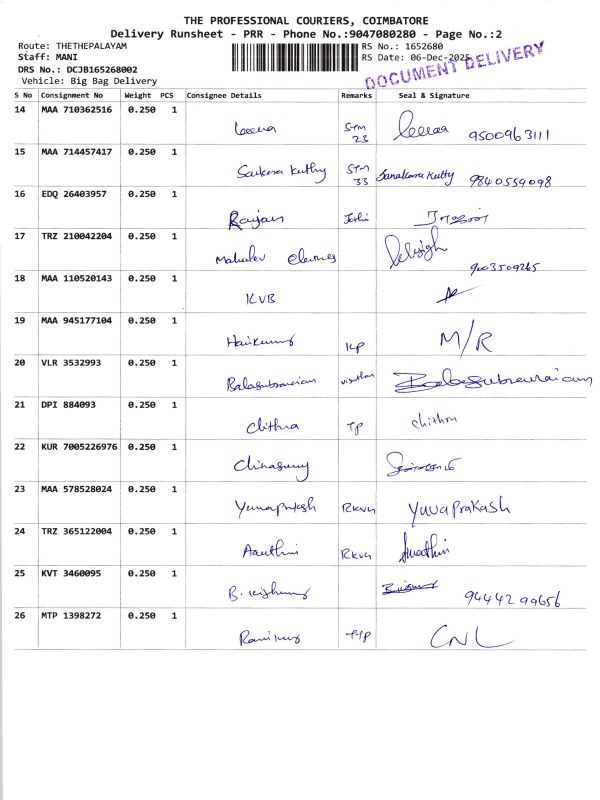 THE PROFESSIONAL COURIERS, COIMBATORE
Delivery Runsheet - PRR - Phone No.:9047080280 - Page No.:2
Route: THETHEPALAYAM RS No.: 1652680
Staff: MANI RS Date: 06-Dec-2025
DOCUMENT DELIVERY
DRS No.: DCJB165268002
Vehicle: Big Bag Delivery
S No Consignment No Weight PCS Consignee Details Remarks Seal & Signature
14 MAA 710362516 0.250 1
Leena STM 23 Leenaa 9500963111
15 MAA 714457417 0.250 1
Kuthy STM 33 Kutty 9840559098
16 EDQ 26403957 0.250 1
Rajan
17 TRZ 210042204 0.250 1
9003509265
18 MAA 110520143 0.250 1
KVB
19 MAA 945177104 0.250 1
KP M/R
20 VLR 3532993 0.250 1
Balasubramaiam
21 DPI 884093 0.250 1
Chithra TP Chithra
22 KUR 7005226976 0.250 1
23 MAA 578528024 0.250 1
Yuvaprakash RKVG Yuvaprakash
24 TRZ 365122004 0.250 1
RKVG
25 KVT 3460095 0.250 1
B. 9444299656
26 MTP 1398272 0.250 1
CNL